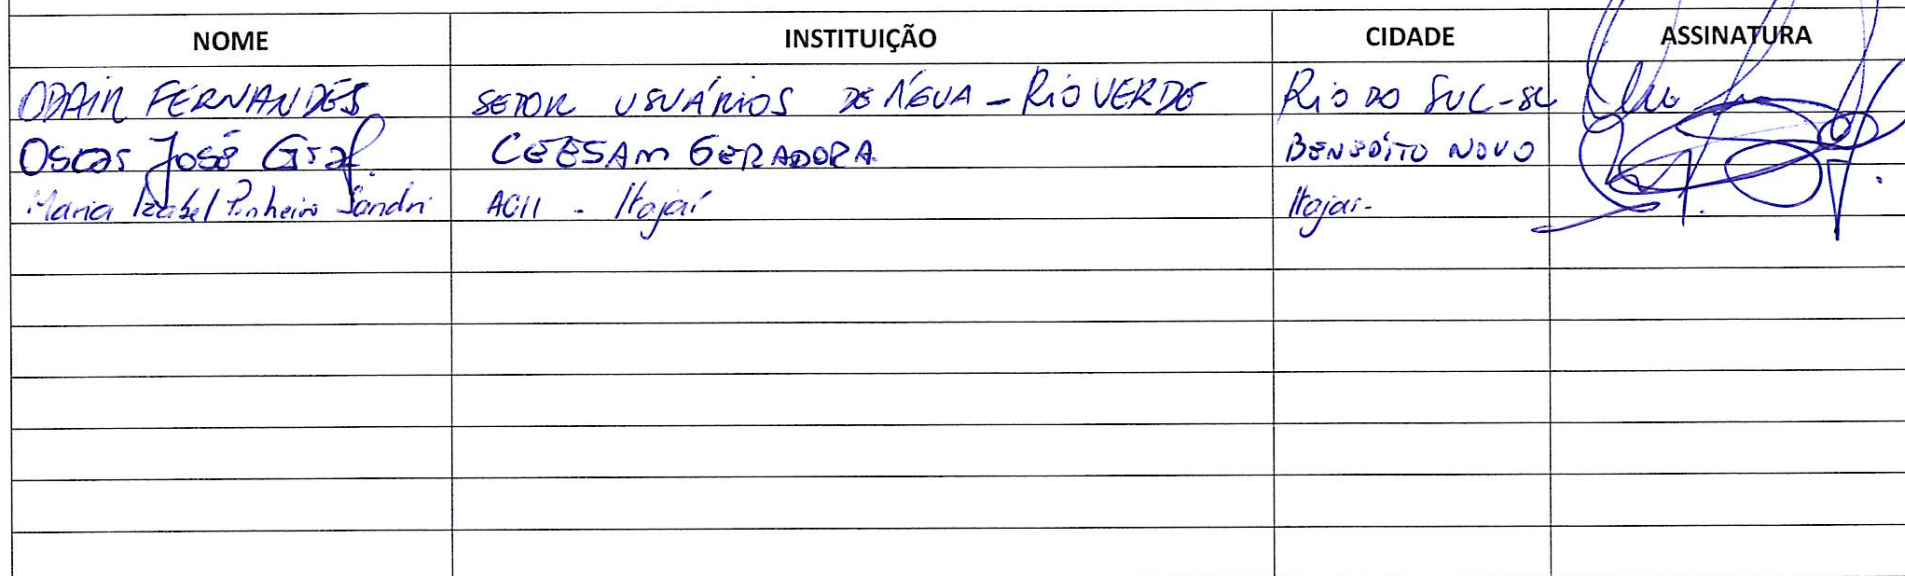 NOME INSTITUIÇÃO CIDADE ASSINATURA
ODAIR FERNANDES SETOR USUÁRIOS DE ÁGUA - RIO VERDE RIO DO SUL-SC
Oscar José Graf. CEESAM GERADORA. BENEDITO NOVO
Maria Izabel Pinheiro Sandri ACII - Itajaí Itajaí-